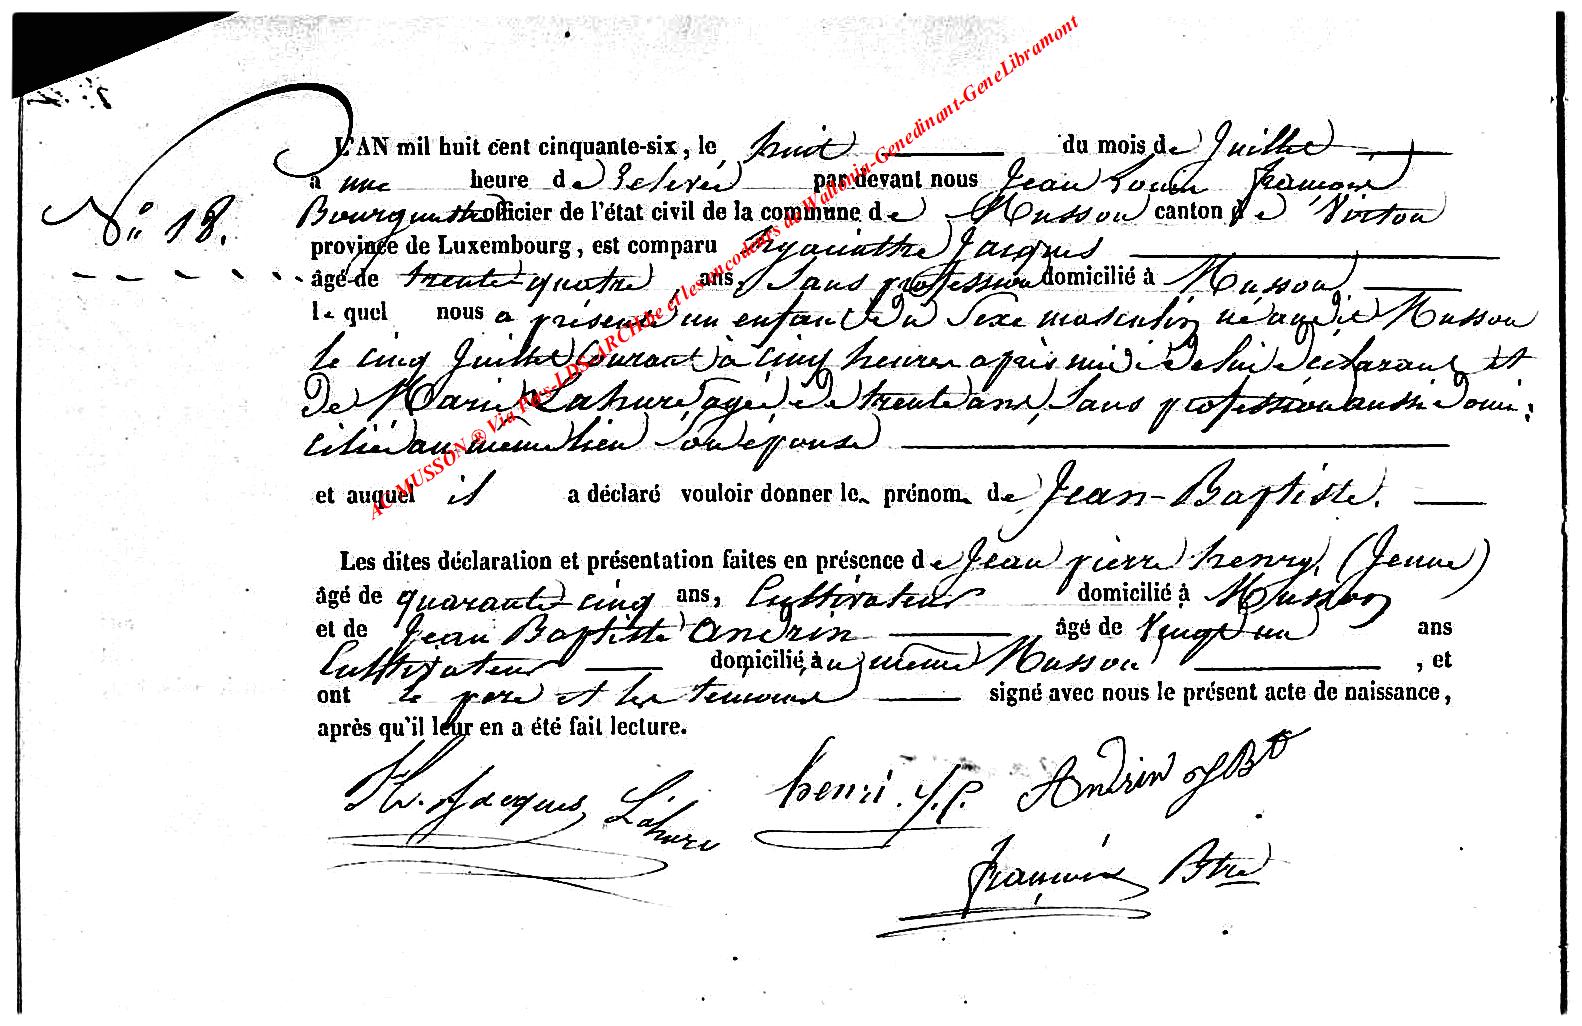 L'AN mil huit cent cinquante-six, le huit du mois de Juillet
à une heure de relevée par devant nous Jean Louis François
N° 18.
Bourgmestre officier de l'état civil de la commune de Musson canton de Virton
province de Luxembourg, est comparu hyacinthe Jacques
âgé de trente-quatre ans, sans profession domicilié à Musson
le quel nous a présenté un enfant du sexe masculin né audit Musson
le cinq Juillet courant à cinq heures après midi de lui déclarant et
de Marie Lahure agée de trente ans, sans profession aussi domi:
ciliée au même lieu son épouse
et auquel il a déclaré vouloir donner le prénom de Jean-Baptiste.
Les dites déclaration et présentation faites en présence de Jean pierre henry, (Jeune)
âgé de quarante-cinq ans, Cultivateur domicilié à Musson
et de Jean Baptiste Andrin âgé de Vingt un ans
Cultivateur domicilié au même Musson, et
ont le père et les temoins signé avec nous le présent acte de naissance,
après qu'il leur en a été fait lecture.
H. Jacques Lahure henri. J. P. Andrin J Bte
François Btre
AC MUSSON ® Via Pays-LDS ARCH.be et les encodeurs de Wallonia-Genedinant-GeneLibramont